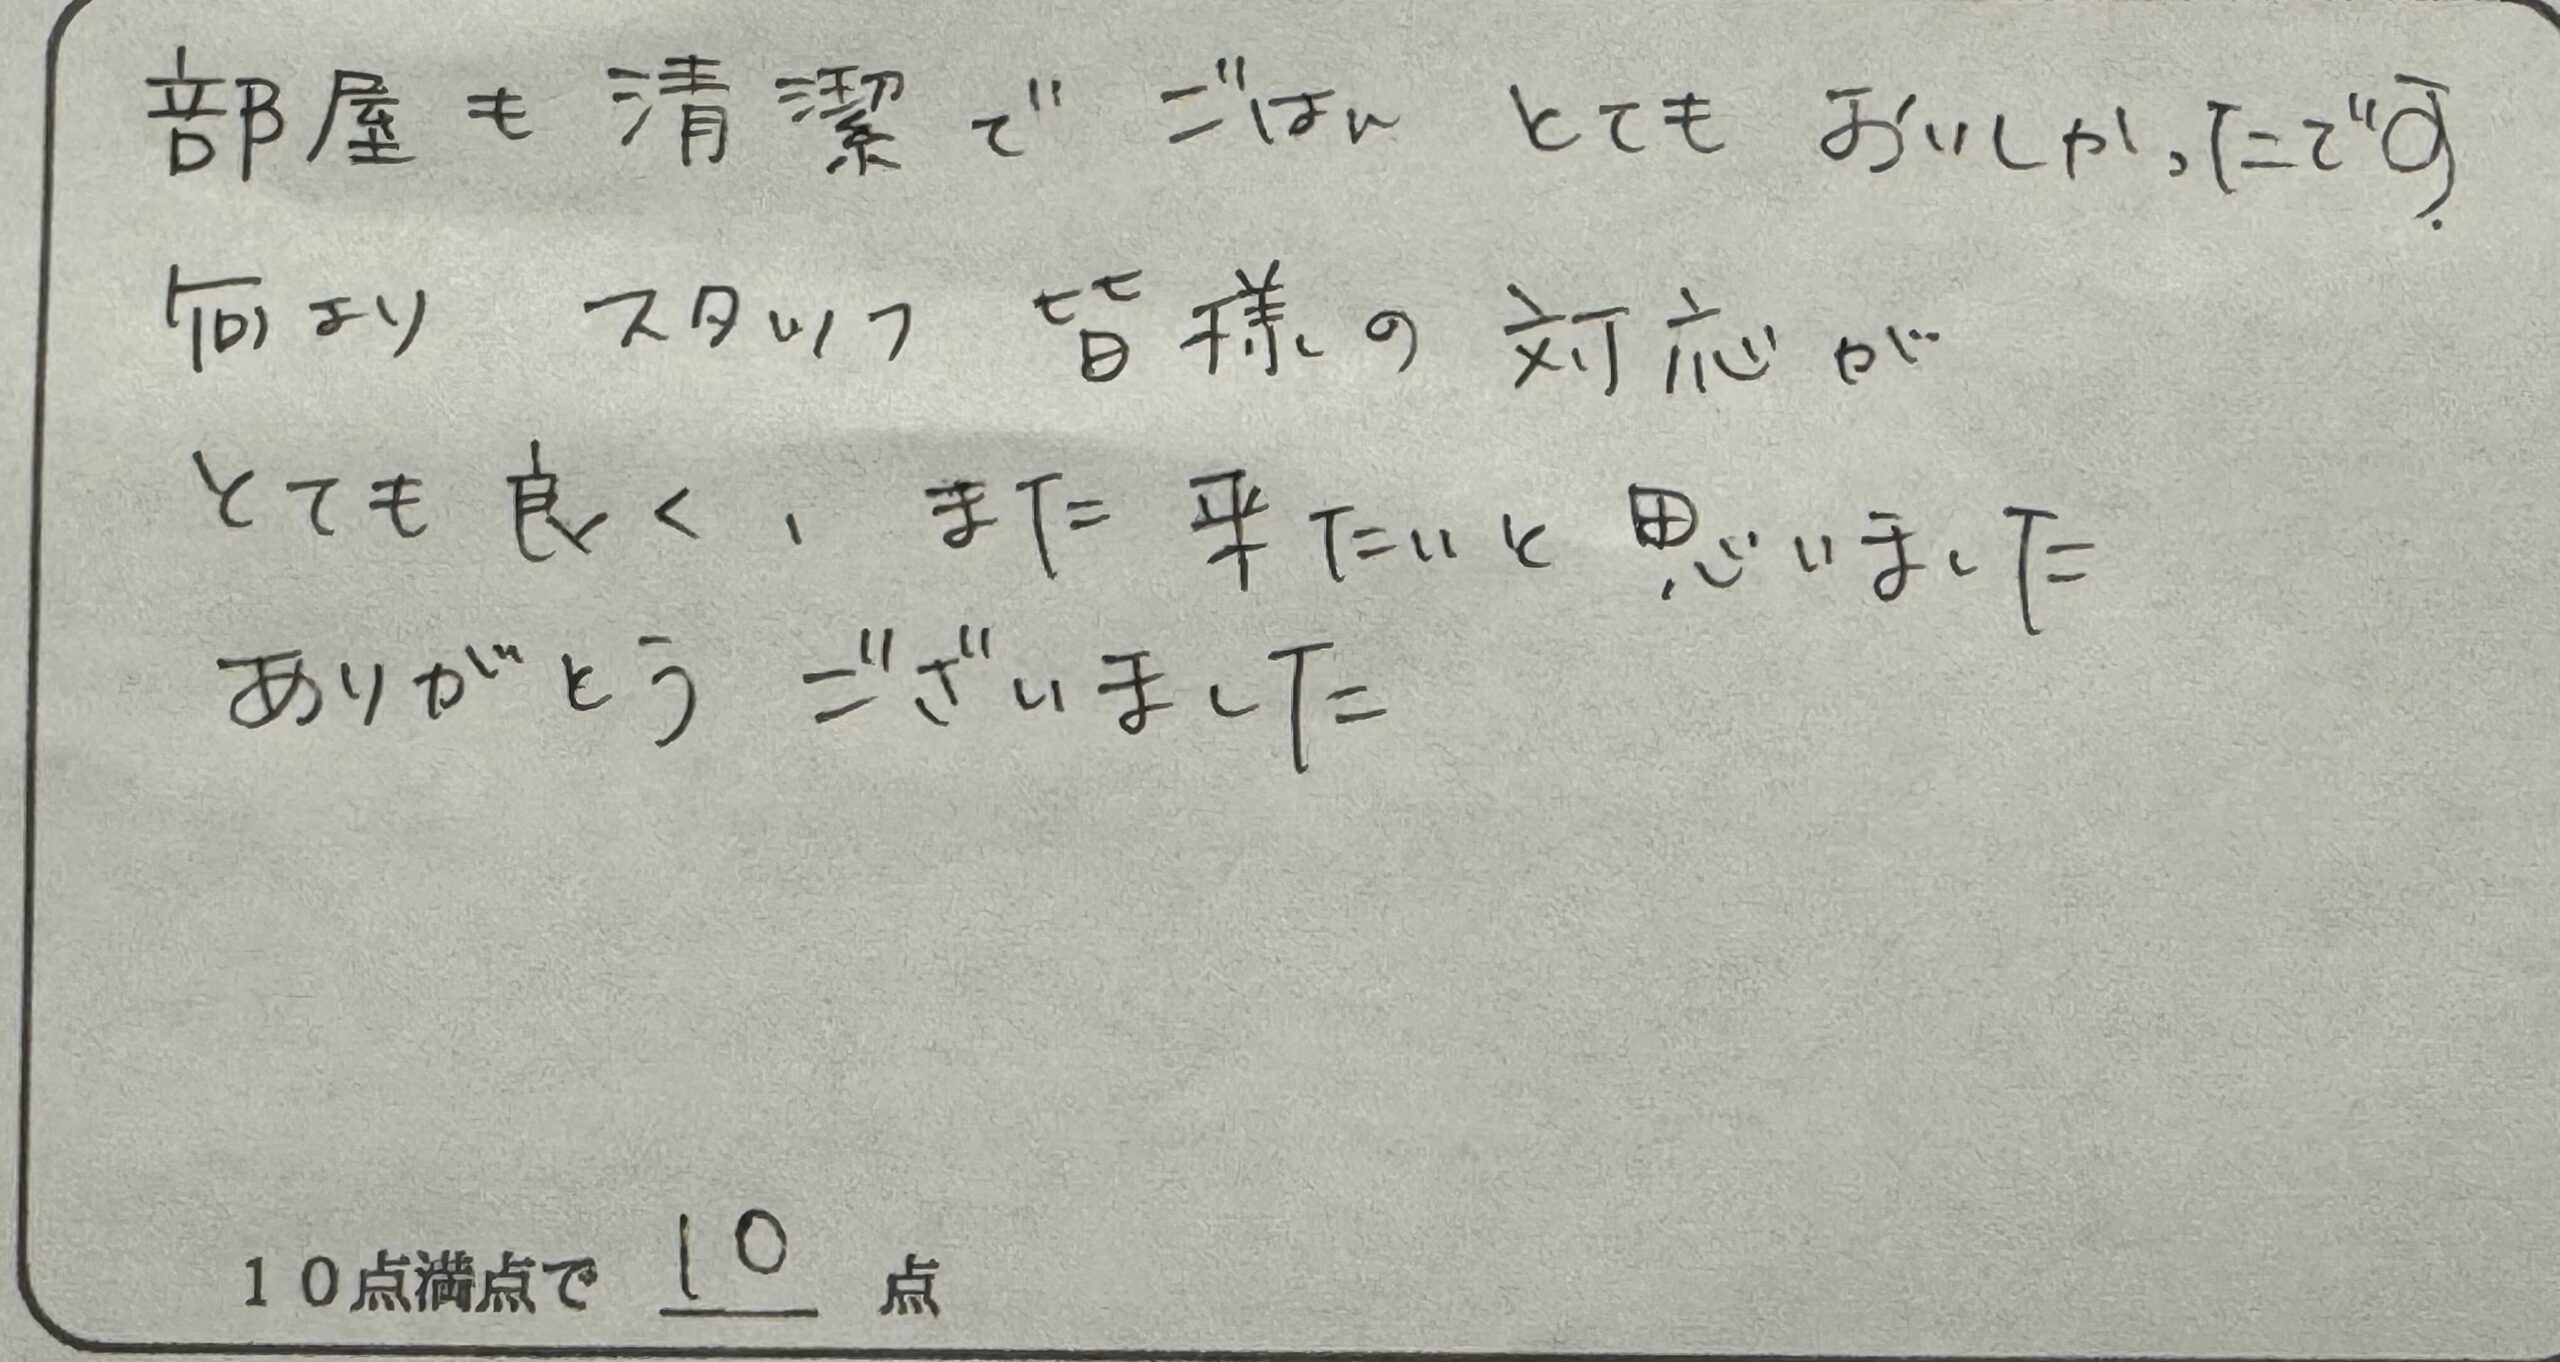 部屋も清潔で ごはん とても おいしかったです.
何より スタッフ 皆様の 対応が
とても良く、また 来たいと 思いました
ありがとう ございました
10点満点で 10 点